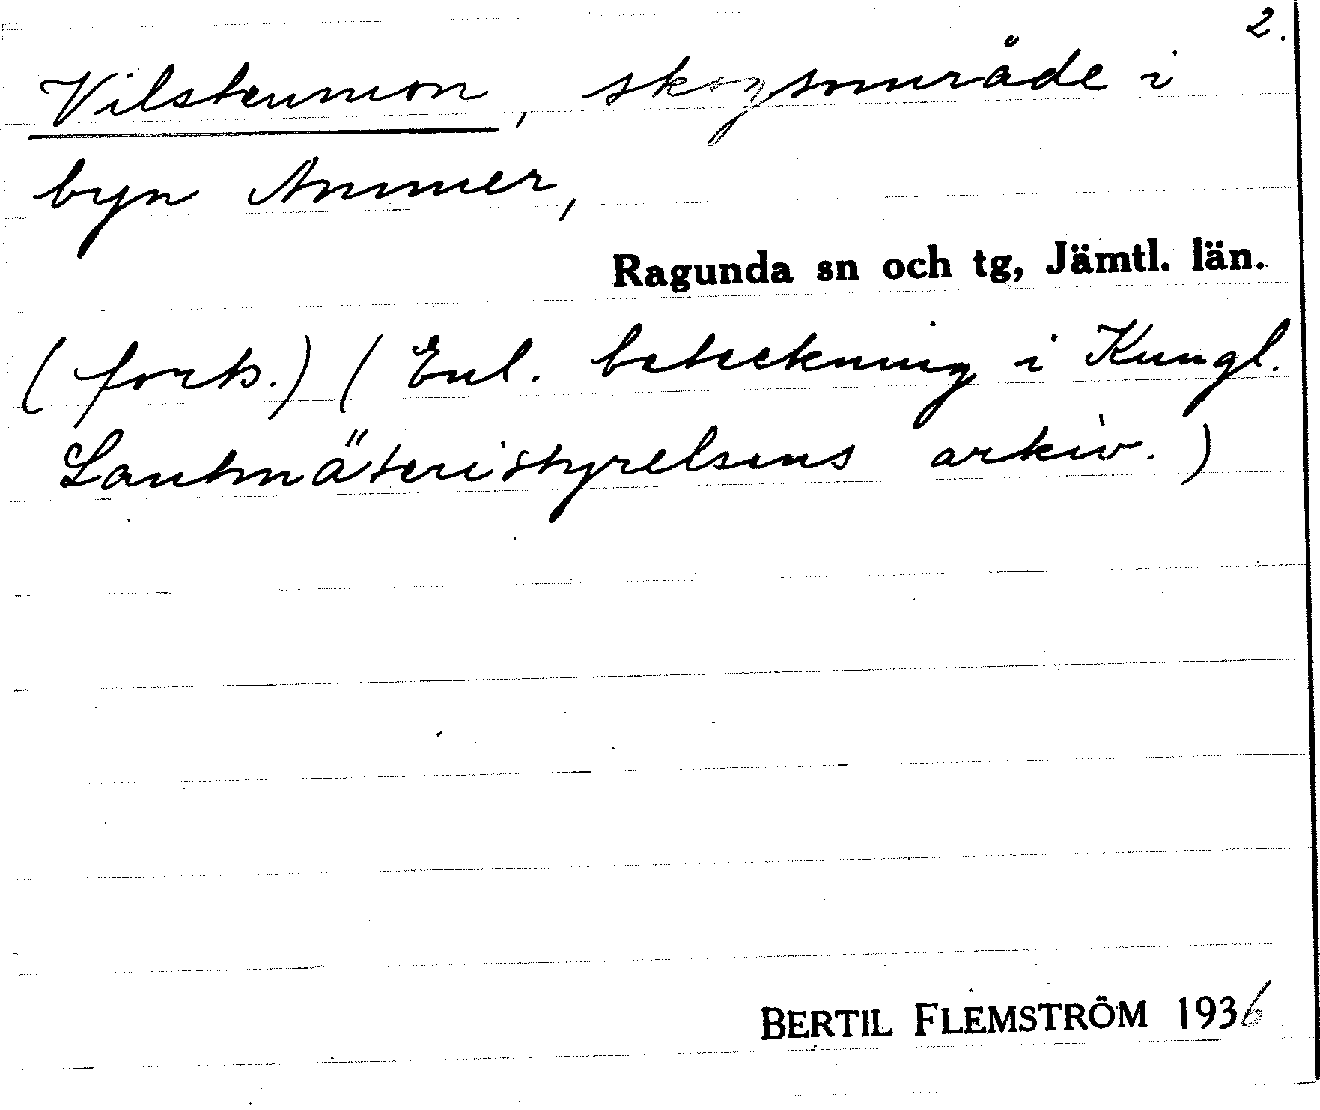 2.
Vilstenmon, skogsområde i
byn Ammer,
Ragunda sn och tg, Jämtl. län.
(forts.) (Enl. beteckning i Kungl.
Lantmäteristyrelsens arkiv.)
BERTIL FLEMSTRÖM 1936